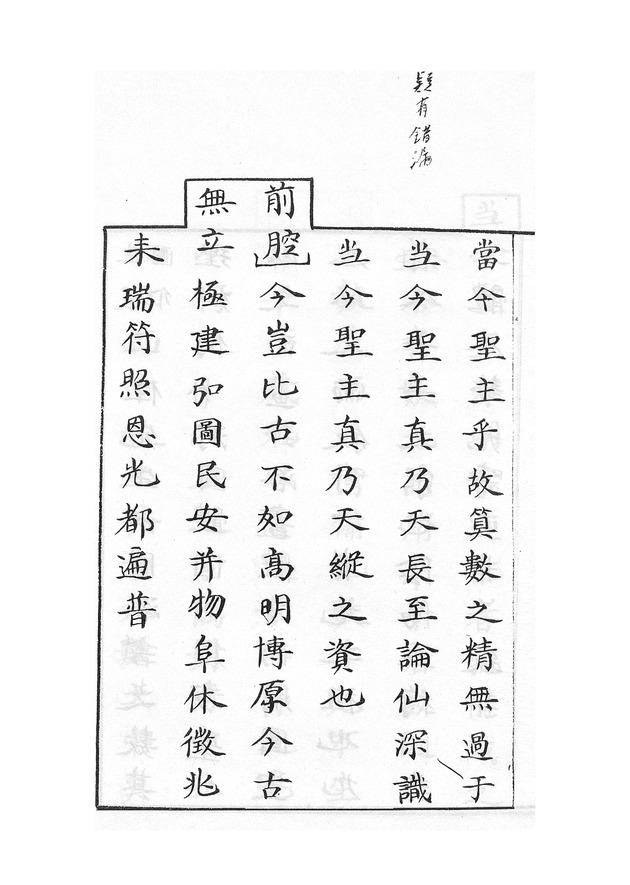 疑有錯漏
當今聖主乎故算數之精無過于
当今聖主真乃天長至論仙深識
当今聖主真乃天縱之資也
前腔今豈比古不如高明博原今古
無立極建弘圖民安并物阜休徵兆
来瑞符照恩光都遍普